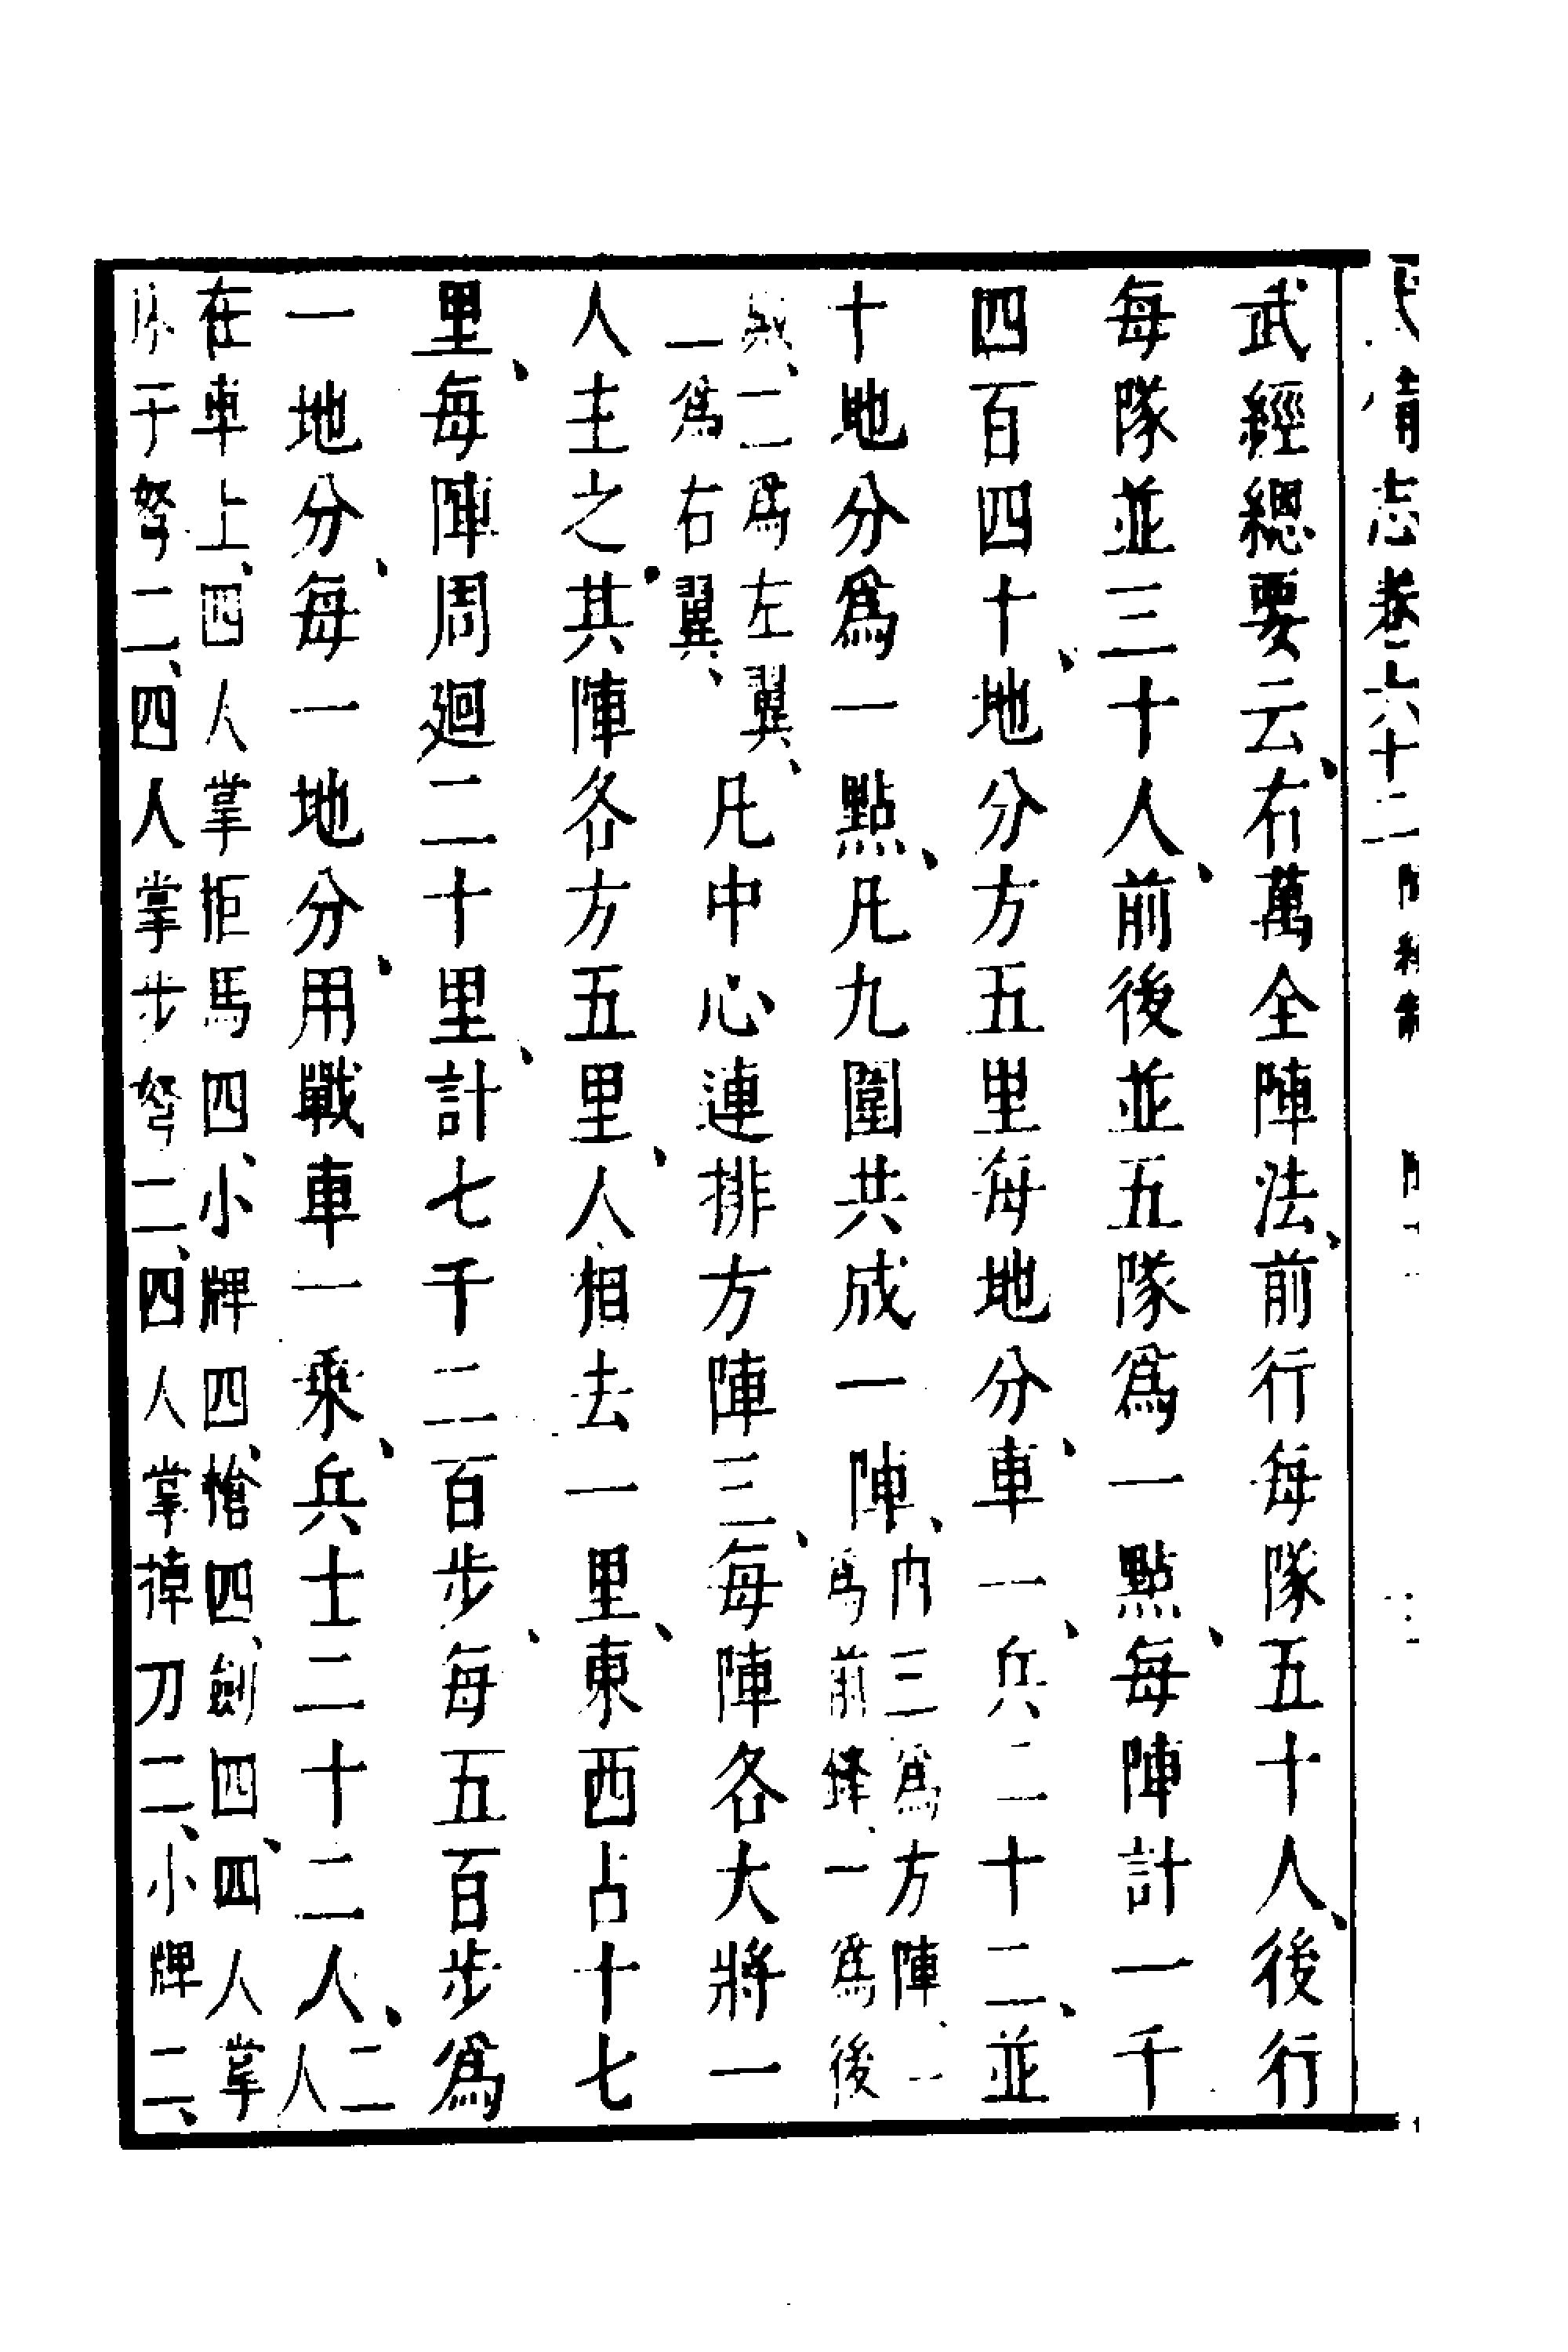 志卷六十二
武經總要云、右萬全陣法、前行每隊五十人、後行
每隊並三十人、前後並五隊爲一點、每陣計一千
四百四十、地分方五里每地分、車一、兵二十二、並
十地分爲一點、凡九圍共成一陣、内三爲方陣、一爲前鋒、一爲後
殿、二爲左翼、一爲右翼、凡中心連排方陣三、每陣各大將一
人主之其陣各方五里、人相去一里、東西占十七
里、每陣周廻二十里、計七千二百步、每五百步爲
一地分、每一地分、用戰車一乘、兵士二十二人、二人
在車上、四人掌拒馬四、小牌四、槍四、劍四、四人掌
床子弩二、四人掌步弩二、四人掌掉刀二、小牌二、